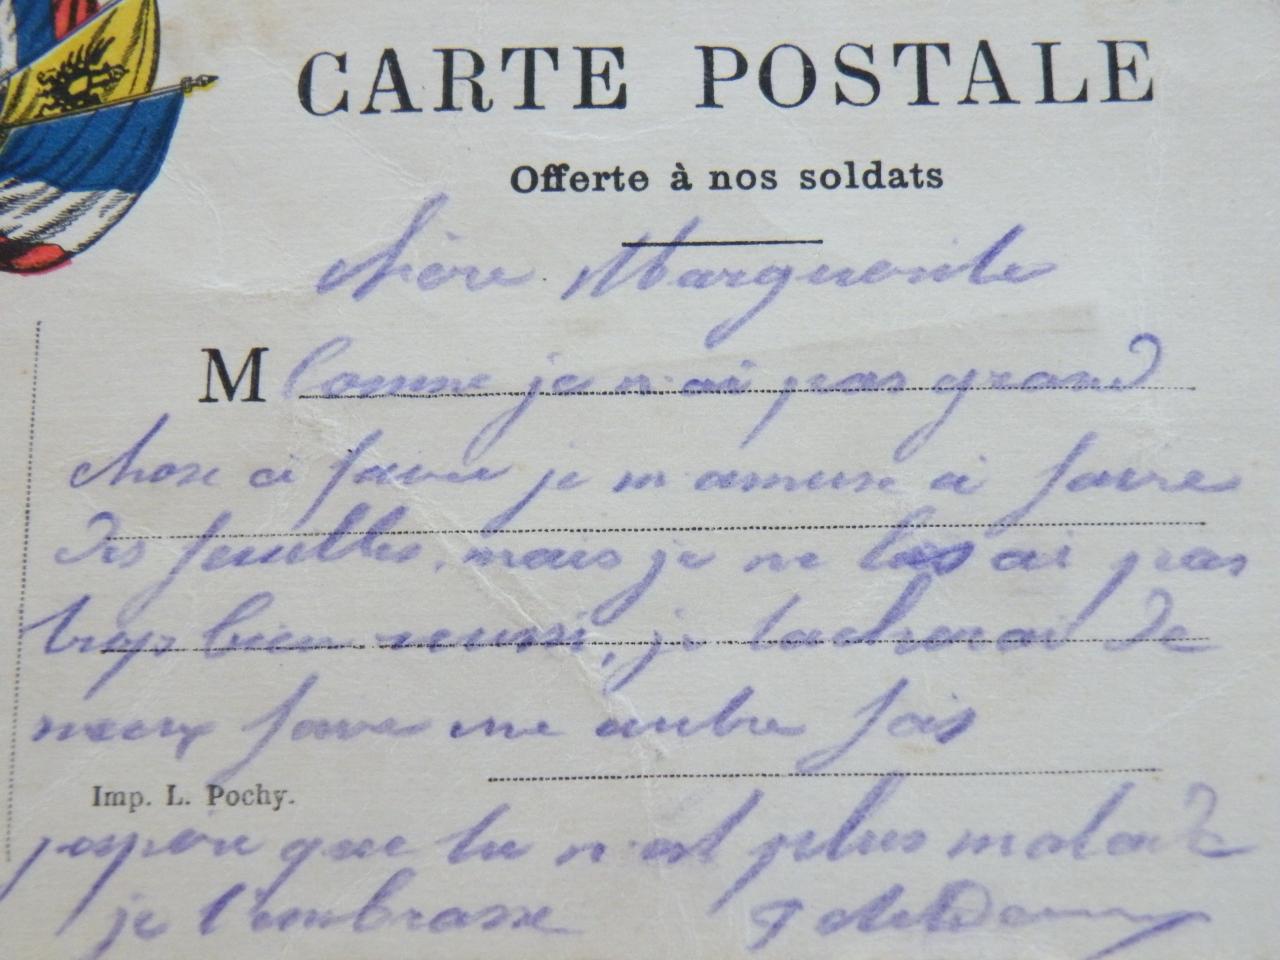 CARTE POSTALE
Offerte à nos soldats
chère Marguerite
M Comme je n'ai pas grand
chose a faire je m'amuse a faire
des feuilles, mais je ne les ai pas
trop bien reussi, je tacherai de
mieux faire une autre fois
Imp. L. Pochy.
j'espère que tu n'est plus malade
je t'embrasse